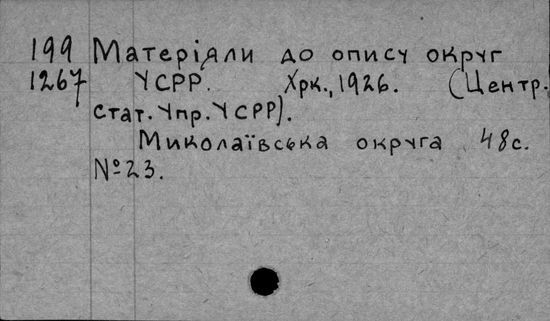 199 Матеріяли до опису округ
1267 УСРР. Хрк., 1926. (Центр.
Стат. Упр. УСРР).
Миколаївська округа 48с.
№23.